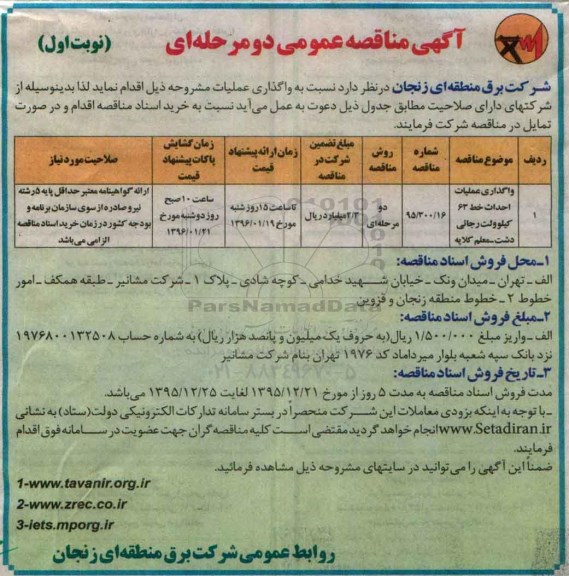 آگهی مناقصه عمومی دو مرحله‌ای
(نوبت اول)
شرکت برق منطقه‌ای زنجان درنظر دارد نسبت به واگذاری عملیات مشروحه ذیل اقدام نماید لذا بدینوسیله از
شرکتهای دارای صلاحیت مطابق جدول ذیل دعوت به عمل می‌آید نسبت به خرید اسناد مناقصه اقدام و در صورت
تمایل در مناقصه شرکت فرمایند.
ردیف | موضوع مناقصه | شماره مناقصه | روش مناقصه | مبلغ تضمین شرکت در مناقصه | زمان ارائه پیشنهاد قیمت | زمان گشایش پاکات پیشنهاد قیمت | صلاحیت مورد نیاز
۱ | واگذاری عملیات احداث خط ۶۳ کیلوولت رجائی دشت-معلم کلایه | ۹۵/۳۰۰/۱۶ | دو مرحله‌ای | ۲/۳ میلیارد ریال | تا ساعت ۱۵ روز شنبه مورخ ۱۳۹۶/۰۱/۱۹ | ساعت ۱۰ صبح روز دوشنبه مورخ ۱۳۹۶/۰۱/۲۱ | ارائه گواهینامه معتبر حداقل پایه ۵ رشته نیرو صادره از سوی سازمان برنامه و بودجه کشور در زمان خرید اسناد مناقصه الزامی می‌باشد
۱-محل فروش اسناد مناقصه:
الف - تهران - میدان ونک - خیابان شهید خدامی - کوچه شادی - پلاک ۱ - شرکت مشانیر - طبقه همکف - امور
خطوط ۲ - خطوط منطقه زنجان و قزوین
۲-مبلغ فروش اسناد مناقصه:
الف - واریز مبلغ ۱/۵۰۰/۰۰۰ ریال(به حروف یک میلیون و پانصد هزار ریال) به شماره حساب ۱۹۷۶۸۰۰۱۳۲۵۰۸
نزد بانک سپه شعبه بلوار میرداماد کد ۱۹۷۶ تهران بنام شرکت مشانیر
۳-تاریخ فروش اسناد مناقصه:
مدت فروش اسناد مناقصه به مدت ۵ روز از مورخ ۱۳۹۵/۱۲/۲۱ لغایت ۱۳۹۵/۱۲/۲۵ می‌باشد.
-با توجه به اینکه بزودی معاملات این شرکت منحصراً در بستر سامانه تدارکات الکترونیکی دولت(ستاد) به نشانی
www.Setadiran.ir انجام خواهد گردید مقتضی است کلیه مناقصه گران جهت عضویت در سامانه فوق اقدام
فرمایند.
ضمناً این آگهی را می‌توانید در سایتهای مشروحه ذیل مشاهده فرمائید.
1-www.tavanir.org.ir
2-www.zrec.co.ir
3-iets.mporg.ir
روابط عمومی شرکت برق منطقه‌ای زنجان
ParsNamadData